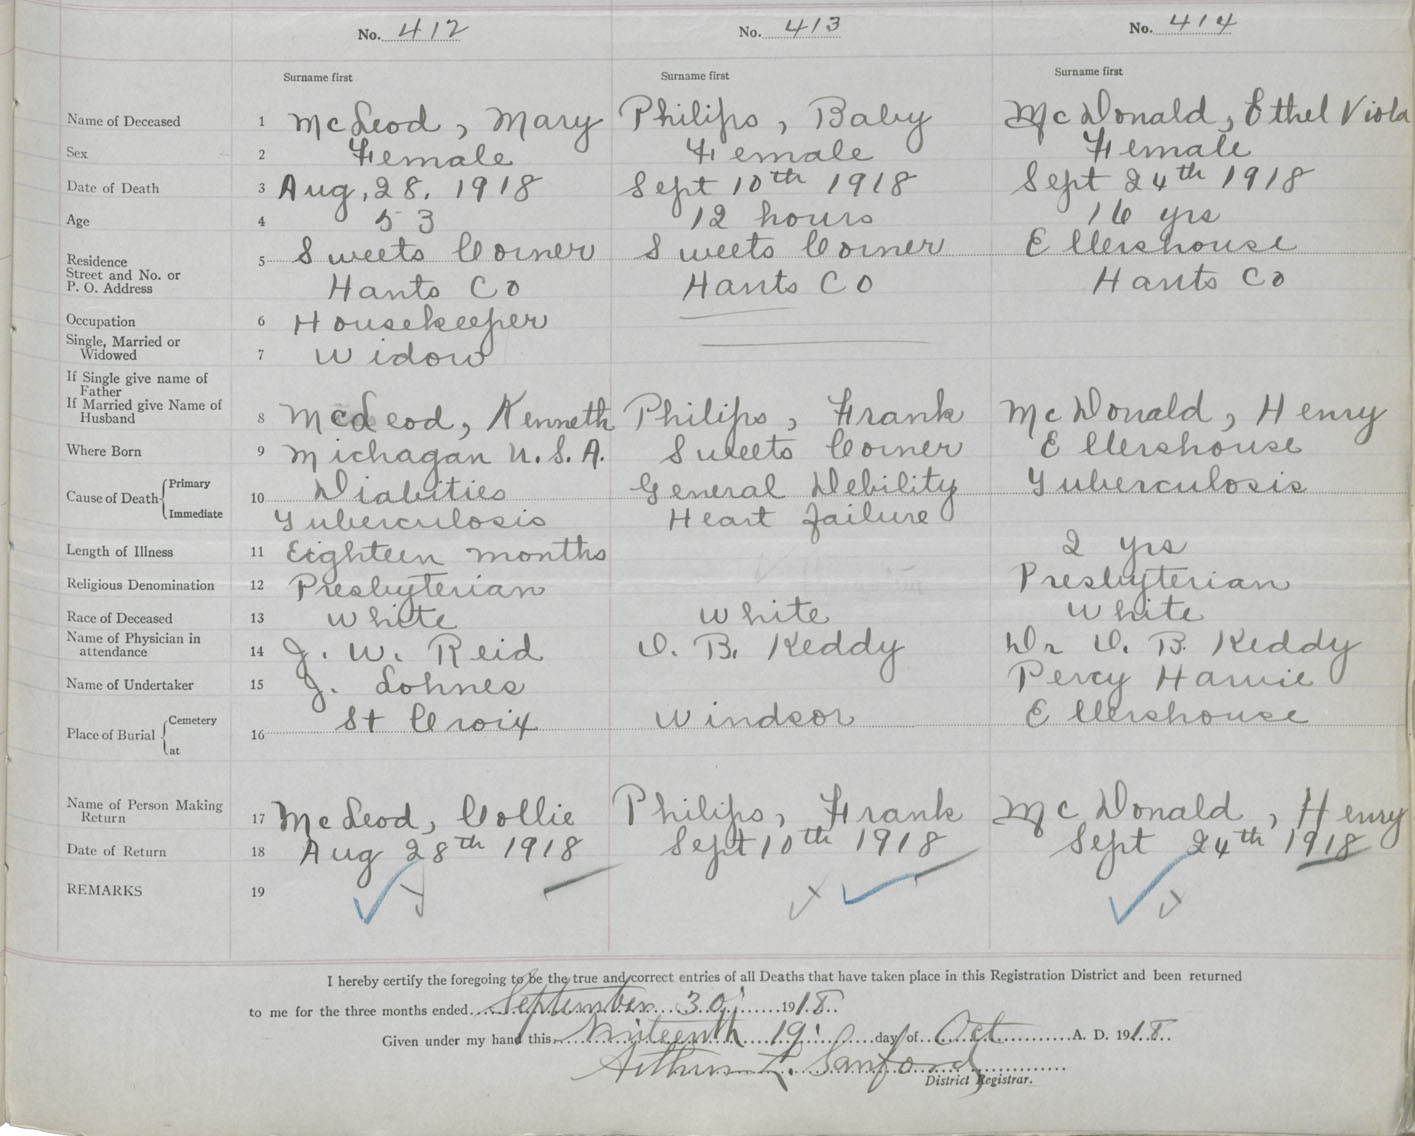 No. 412 No. 413 No. 414
Surname first Surname first Surname first
Name of Deceased 1 McLeod, Mary Philips, Baby McDonald, Ethel Viola
Sex 2 Female Female Female
Date of Death 3 Aug, 28, 1918 Sept 10th 1918 Sept 24th 1918
Age 4 53 12 hours 16 yrs
Residence 5 Sweets Corner Sweets Corner Ellershouse
Street and No. or
P. O. Address Hants Co Hants Co Hants Co
Occupation 6 Housekeeper
Single, Married or
Widowed 7 Widow
If Single give name of
Father
If Married give Name of
Husband 8 McLeod, Kenneth Philips, Frank McDonald, Henry
Where Born 9 Michagan U.S.A. Sweets Corner Ellershouse
Cause of Death Primary 10 Diabities General Debility Tuberculosis
Immediate Tuberculosis Heart failure
Length of Illness 11 Eighteen months 2 yrs
Religious Denomination 12 Presbyterian Presbyterian
Race of Deceased 13 White White White
Name of Physician in
attendance 14 J. W. Reid O. B. Keddy Dr O. B. Keddy
Name of Undertaker 15 J. Lohnes Percy Harvie
Place of Burial Cemetery at 16 St Croix Windsor Ellershouse
Name of Person Making
Return 17 McLeod, Collie Philips, Frank McDonald, Henry
Date of Return 18 Aug 28th 1918 Sept 10th 1918 Sept 24th 1918
REMARKS 19
I hereby certify the foregoing to be the true and correct entries of all Deaths that have taken place in this Registration District and been returned
to me for the three months ended September 30 1918.
Given under my hand this Ninteenth 19 day of Oct A. D. 1918.
Arthur L. Sanford
District Registrar.